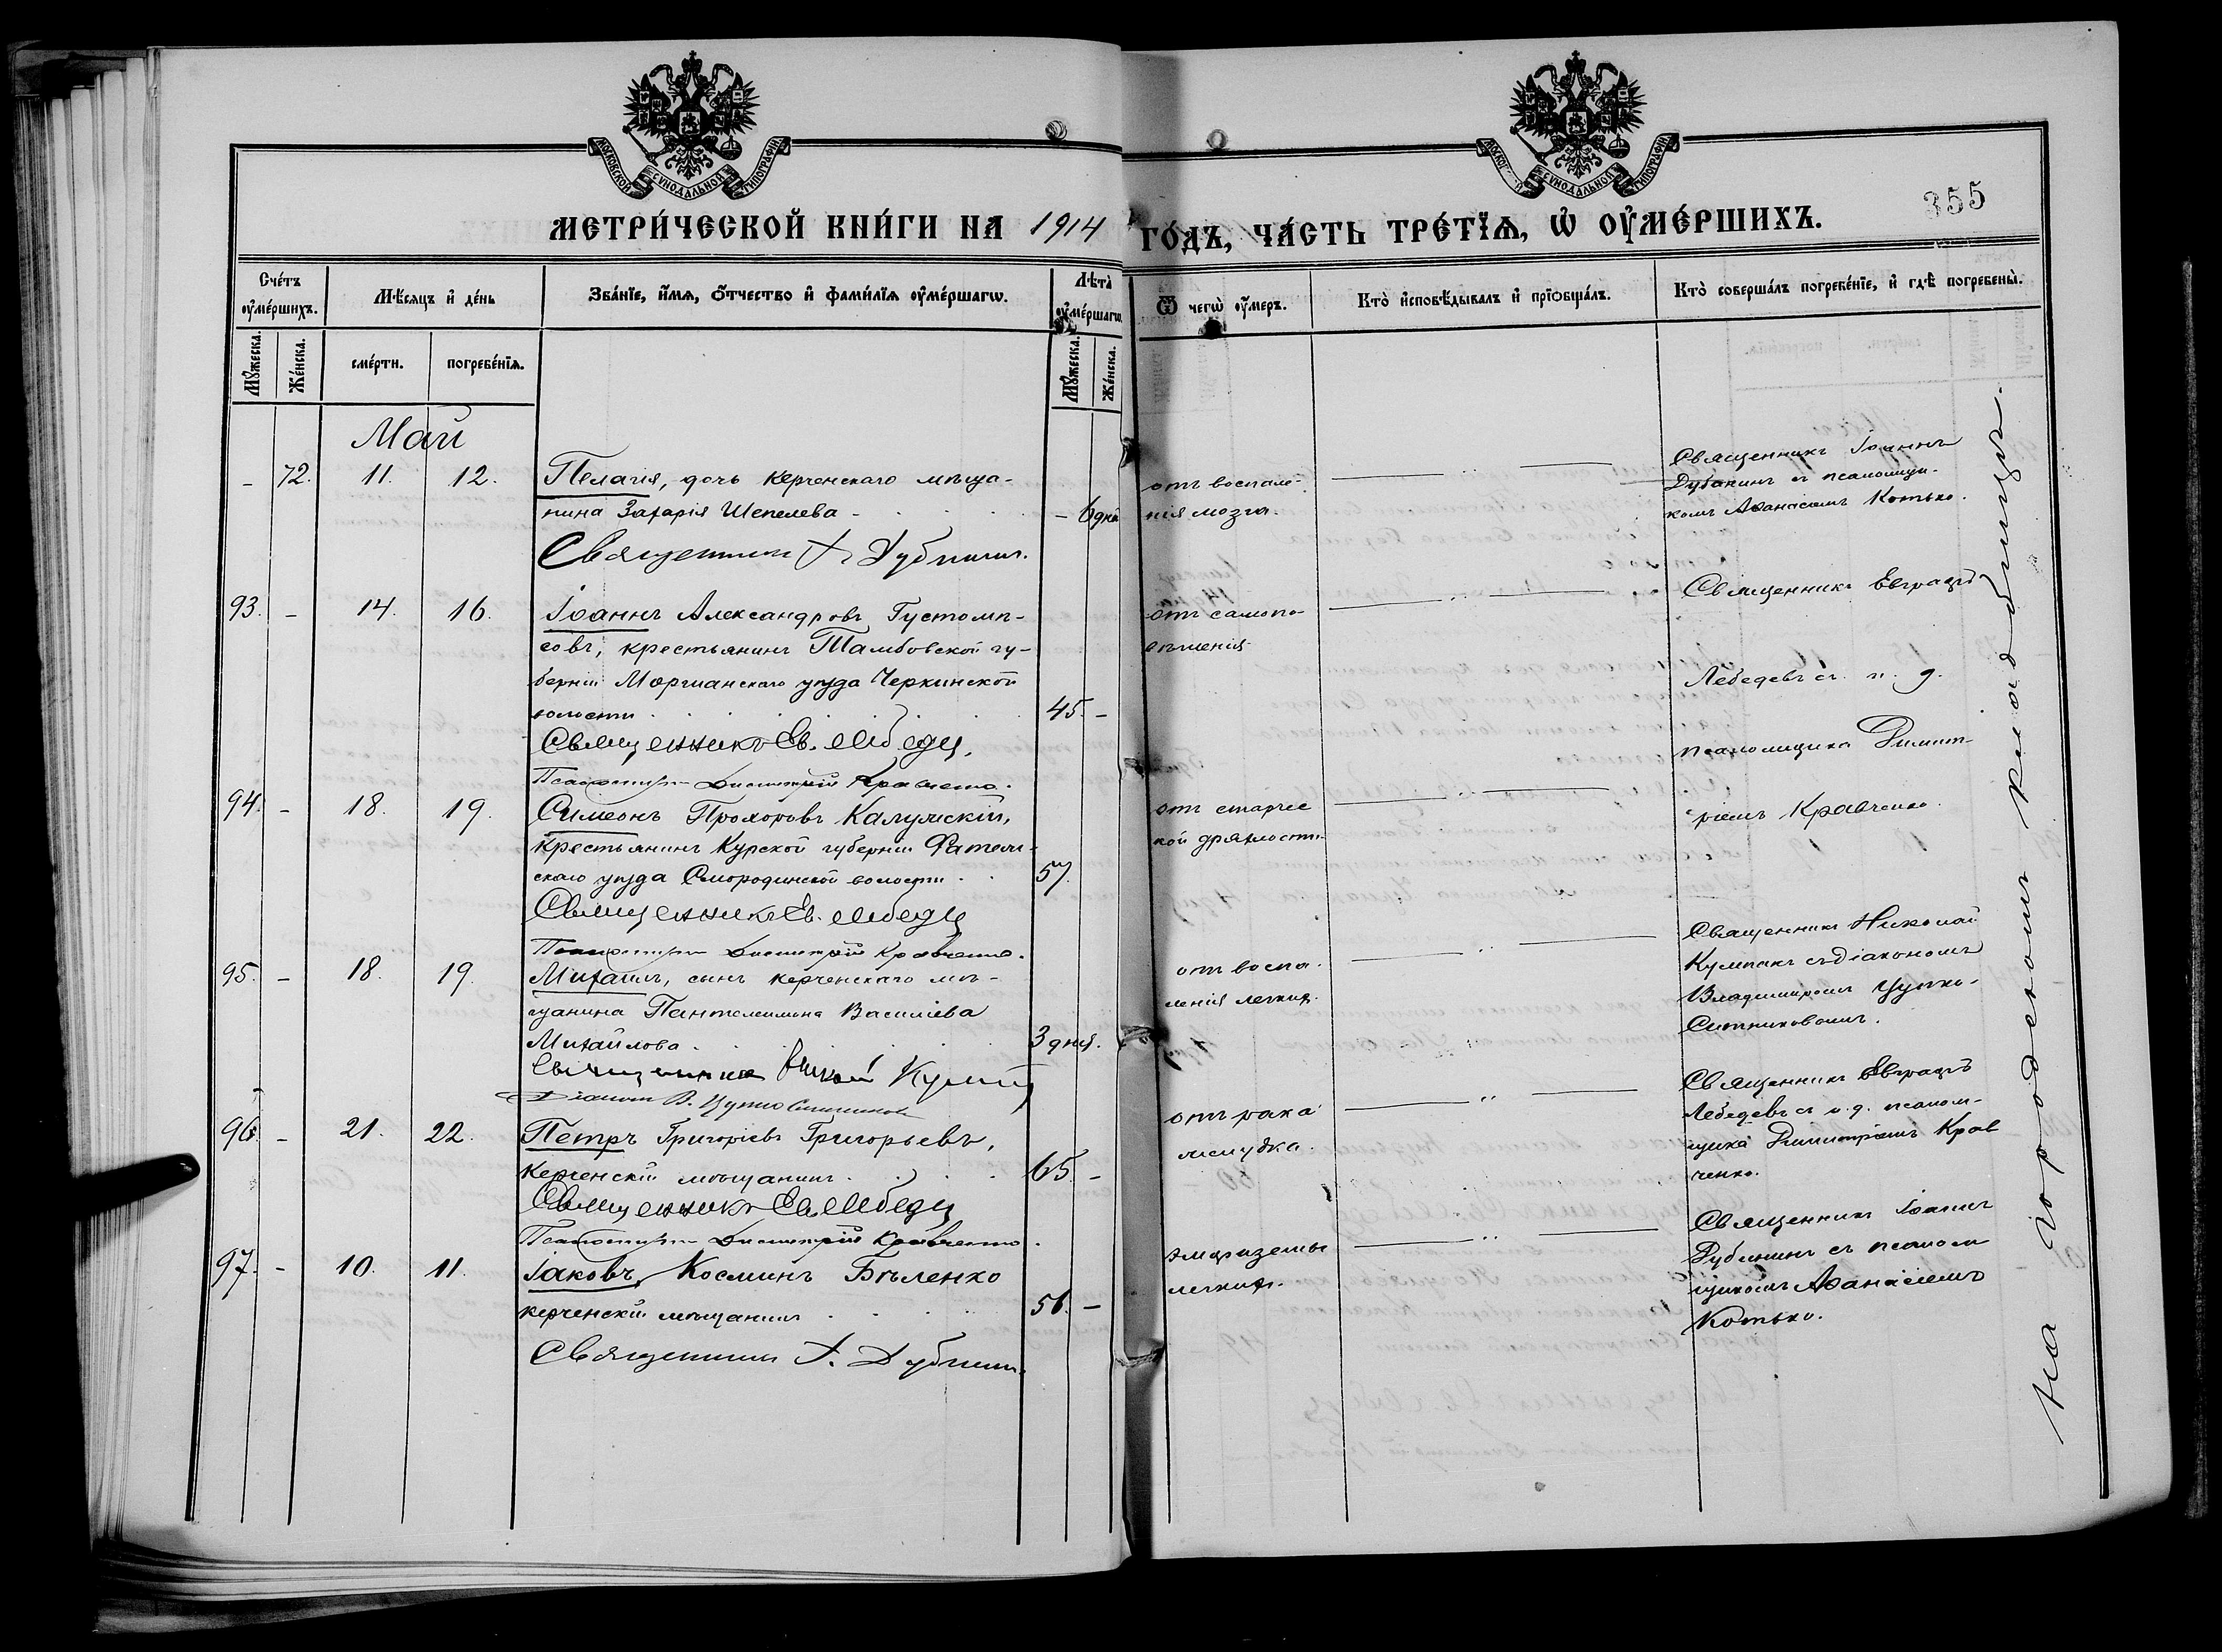 МОСКОВСКОЙ СѴНОДАЛЬНОЙ ТИПОГРАФІИ
МОСКО СѴНОДАЛЬНОЙ ТИПОГРАФІИ
355
МЕТРИ́ЧЕСКОЙ КНИ́ГИ НА 1914 ГО́ДЪ, ЧА́СТЬ ТРЕ́ТЇѦ, Ѡ҆ ОУ҆МЕ́РШИХЪ.
Сче́тъ оу҆ме́ршихъ.
Мѣ́сѧцъ и҆ де́нь
Зва́нїе, и҆́мѧ, ѻ҆́тчество и҆ фами́лїѧ оу҆ме́ршагѡ.
Лѣта̀ оу҆ме́ршагѡ
Ѿ чегѡ̀ оу҆́меръ.
Кто̀ и҆сповѣ́дывалъ и҆ прїѡбща́лъ.
Кто̀ соверша́лъ погребе́нїе, и҆ гдѣ̀ погребены̀.
Мꙋ́жеска.
Же́нска.
сме́рти.
погребе́нїѧ.
Мꙋ́жеска.
Же́нска.
Май
- 72. 11. 12. Пелагія, дочь керченскаго мѣща-
нина Захарія Шепелева - - 6 дней
Священникъ І. Дубининъ.
отъ воспале-
нія мозга.
Священникъ Іоаннъ
Дубининъ съ псаломщи-
комъ Аѳанасіемъ Котько.
93. - 14. 16. Іоаннъ Александровъ Густомя-
совъ, крестьянинъ Тамбовской гу-
берніи Моршанскаго уѣзда Черкинской
волости 45. -
Священникъ Ев. Лебедев
Псаломщикъ Димитрій Кравченко.
отъ самопо-
вѣшенія
Священникъ Евграфъ
Лебедевъ съ и. д.
псаломщика Димит-
ріемъ Кравченко.
94. - 18. 19. Симеонъ Прохоровъ Калужскій,
крестьянинъ Курской губерніи Фатеж-
скаго уѣзда Смородинской волости 57.
Священникъ Ев. Лебедев
Псаломщикъ Димитрій Кравченко.
отъ старчес
кой дряхлости
95. - 18. 19. Михаилъ, сынъ керченскаго мѣ-
щанина Пантелеимона Василіева
Михайлова 3 дня.
Священникъ Николай Кумпан
Діаконъ В. Цупко Ситниковъ
отъ воспа-
ленія легкихъ.
Священникъ Николай
Кумпанъ съ діакономъ
Владиміромъ Цупко-
Ситниковымъ.
96. - 21. 22. Петръ Григоріевъ Григорьевъ,
керченскій мѣщанинъ. 65. -
Священникъ Ев. Лебедев
Псаломщикъ Димитрій Кравченко.
отъ рака
желудка.
Священникъ Евграфъ
Лебедевъ съ и. д. псалом-
щика Димитріемъ Крав
ченко.
97. - 10. 11. Іаковъ Косминъ Бѣленко
керченскій мѣщанинъ 56. -
Священникъ І. Дубинин.
эмфиземы
легкихъ.
Священникъ Іоаннъ
Дубининъ съ псалом
щикомъ Аѳанасіемъ
Котько.
На городскомъ кладбищѣ.